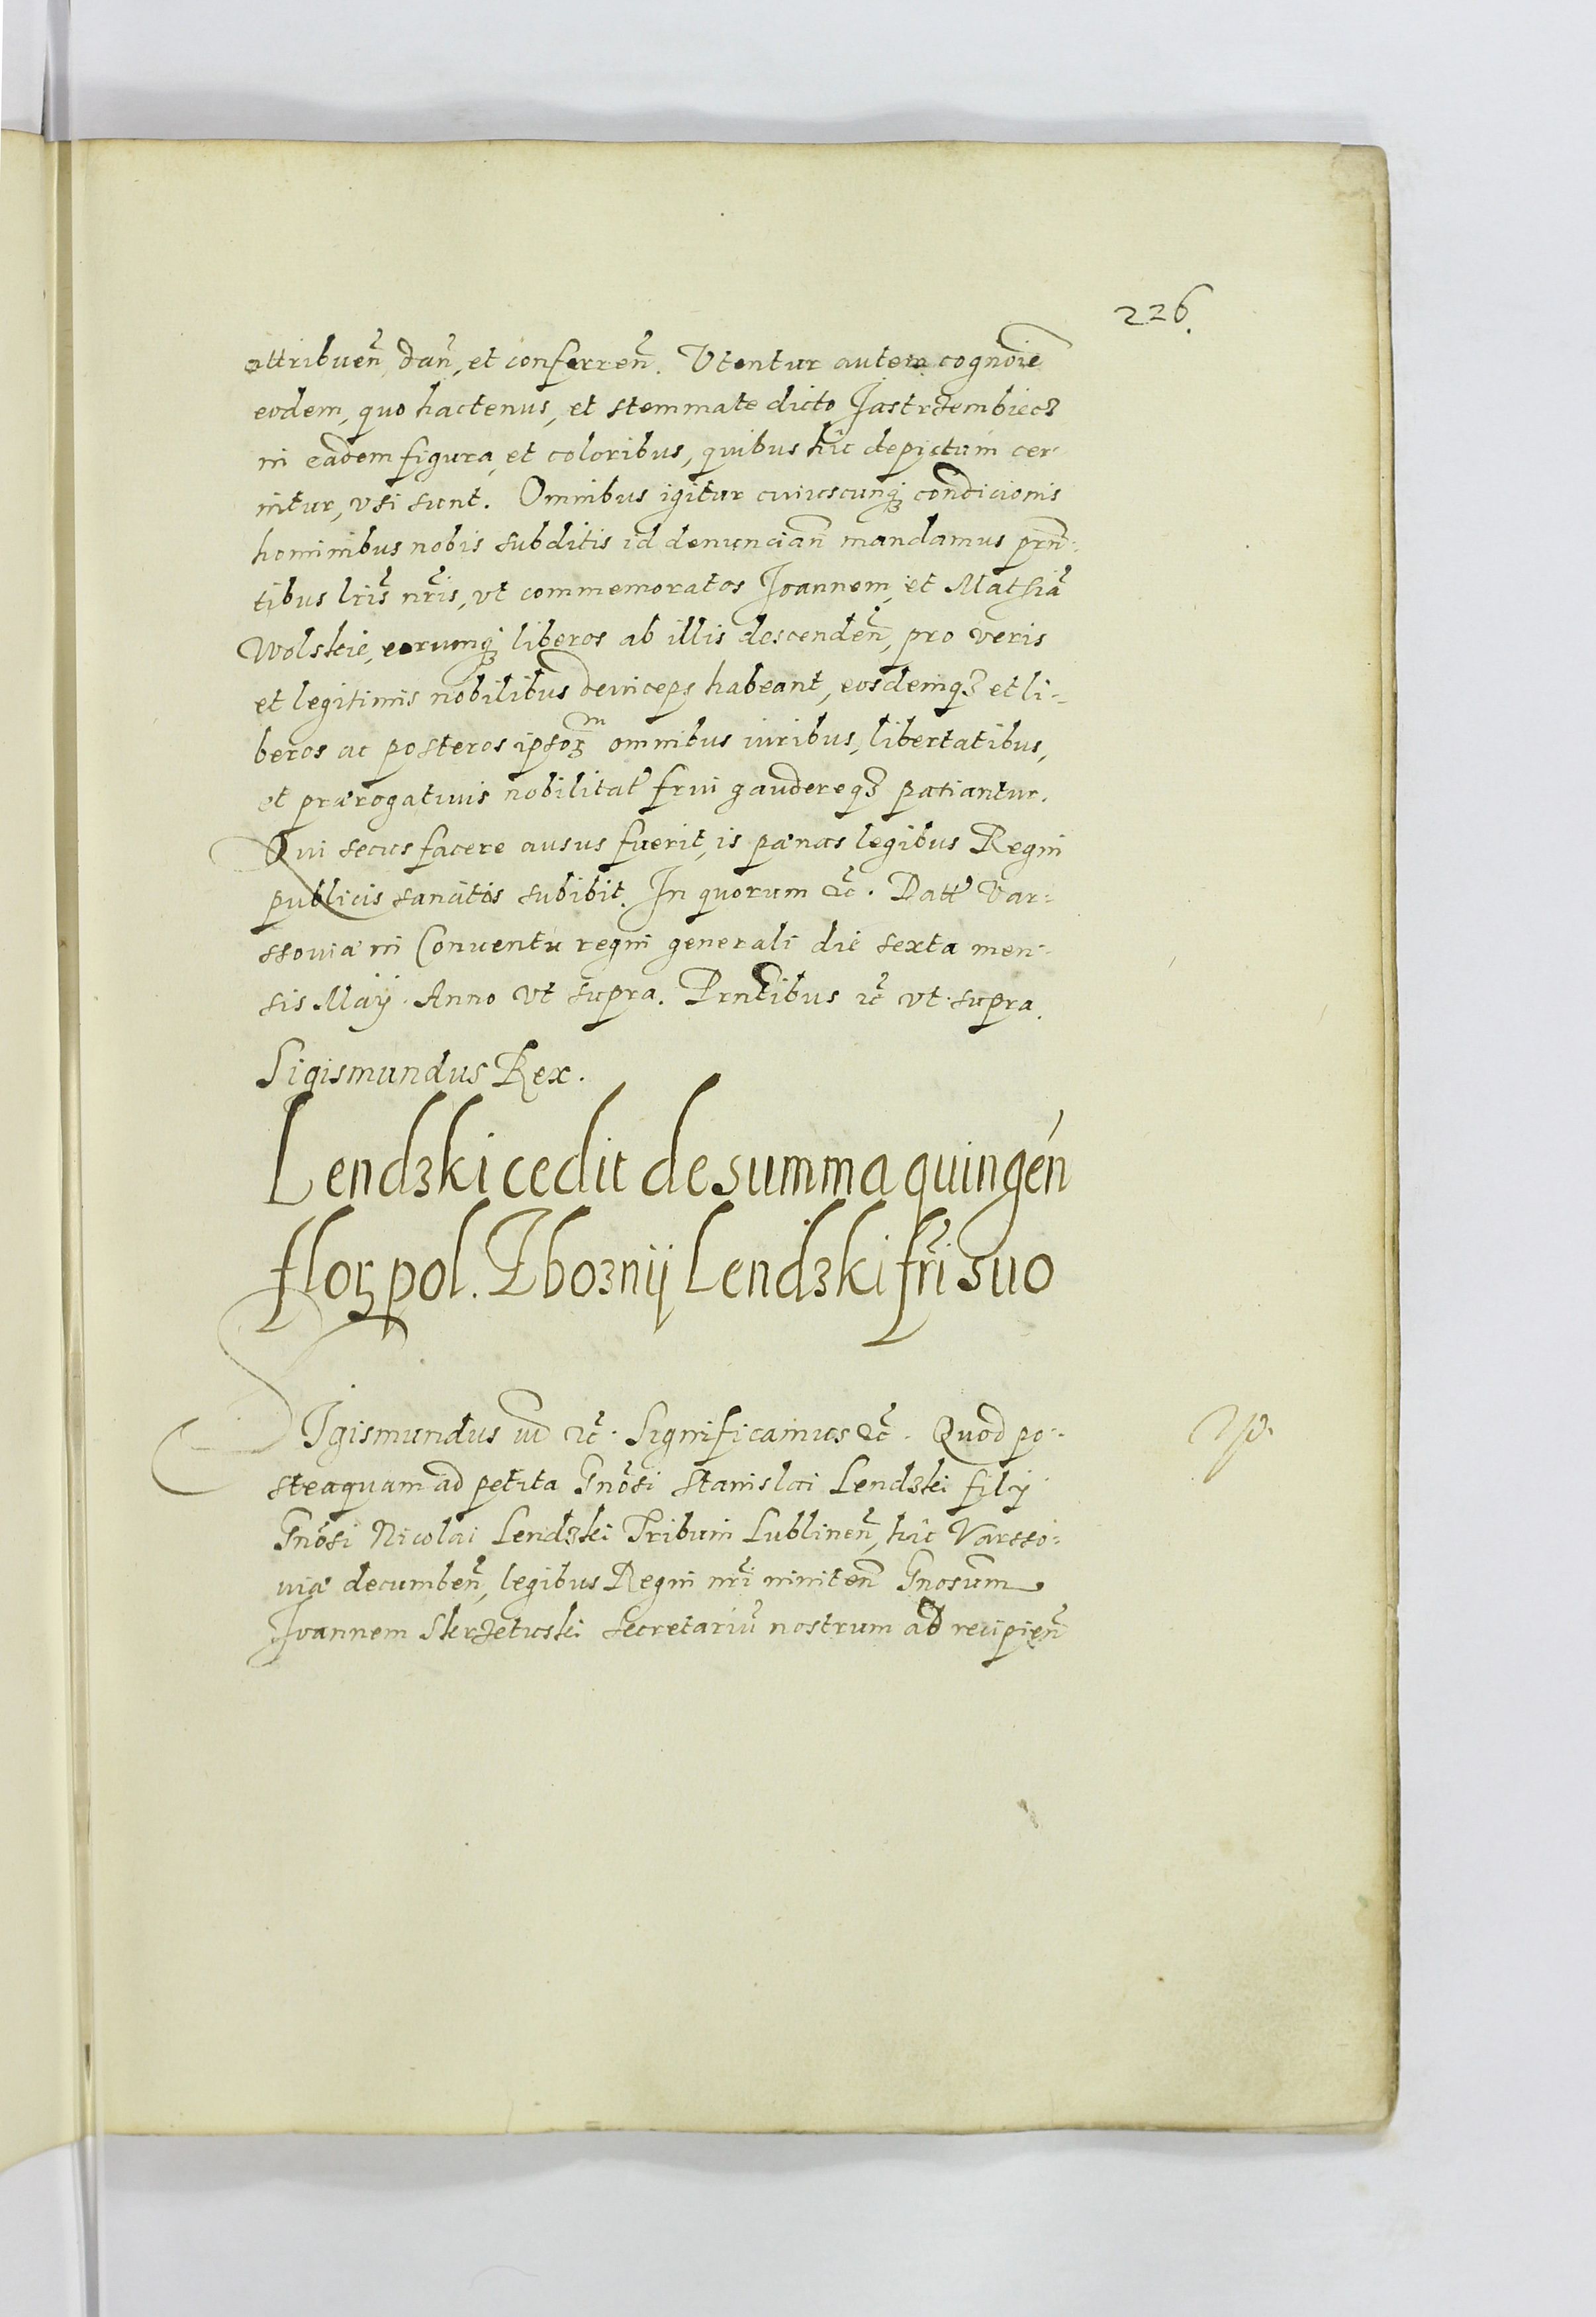 226.
attribueñ, dañ, et conferreñ. Utentur autem cognoīe
eodem, quo hactenus, et stemmate dicto Jastrzembiecz
in eadem figura, et coloribus, quibus hîc depictum cer-
nitur, vsi sunt. Omnibus igitur cuiuscunqꝫ condicionis
hominibus nobis subditis id denunciañ mandamus prñ-
tibus lr̃is nr̃is, vt commemoratos Joannem, et Mathiã
Wolskie, eorumqꝫ liberos ab illis descendeñ, pro veris
et legitimis nobilibus deinceps habeant, eosdemqꝫ et li-
beros ac posteros ipsoꝝ omnibus iuribus, libertatibus,
et prærogatiuis nobilitat̃ frui gaudereqꝫ patiantur.
Qui secus facere ausus fuerit, is pænas legibus Regni
publicis sancitis subibit. In quorum &c̃. Datt̃ Var-
ssouiæ in Conuentu regni generali die sexta men-
sis Maij. Anno vt supra. Prñtibus &c̃ vt supra.
Sigismundus Rex.
Lendzki cedit de summa quingeń
floꝝ pol. Zboznij Lendzki fr̃i suo
SIgismundus iii &c̃. Significamus &c̃. Quod po-
steaquam ad petita Gnõsi Stanislai Lendzki filij
Gnõsi Nicolai Lendzki Tribuni Lublineñ, hîc Varsso-
uiæ decumbeñ, legibus Regni nr̃i inniteñ Gnosum̃
Joannem Skrzetuski Secretariũ nostrum ad recipień